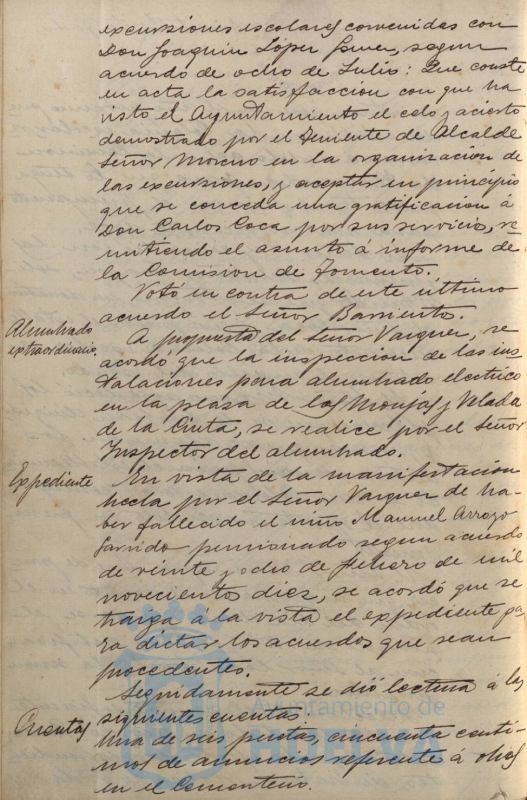 excursiones escolares convenidas con
Don Joaquin López Gomez, segun
acuerdo de ocho de Julio: Que conste
en acta la satisfaccion con que ha
visto el Ayuntamiento el celo y acierto
demostrado por el Teniente de Alcalde
Señor Moreno en la organizacion de
las excursiones, y aceptar en principio
que se conceda una gratificacion á
Don Carlos Coca por sus servicio, re
mitiendo el asunto á informe de
la Comision de Fomento.
Votó en contra de este último
acuerdo el Señor Barriento.
Alumbrado
extraordinario.
A propuesta del Señor Vazquez, se
acordó que la inspeccion de las ins
talaciones para alumbrado electrico
en la plaza de las Monjas y Velada
de la Cinta, se realice por el Señor
Inspector del alumbrado.
Expediente
En vista de la manifestacion
hecha por el Señor Vazquez de ha-
ber fallecido el niño Manuel Arroyo
Garrido pensionado segun acuerdo
de veinte y ocho de Febrero de mil
novecientos diez, se acordó que se
traiga á la vista el expediente pa
ra dictar los acuerdos que sean
procedentes.
Seguidamente se dió lectura á las
siguientes cuentas.
Cuentas
Una de seis pesetas, cincuenta centi-
mos de anuncios referente á obras
en el Cementerio.
Ayuntamiento de
HUELVA